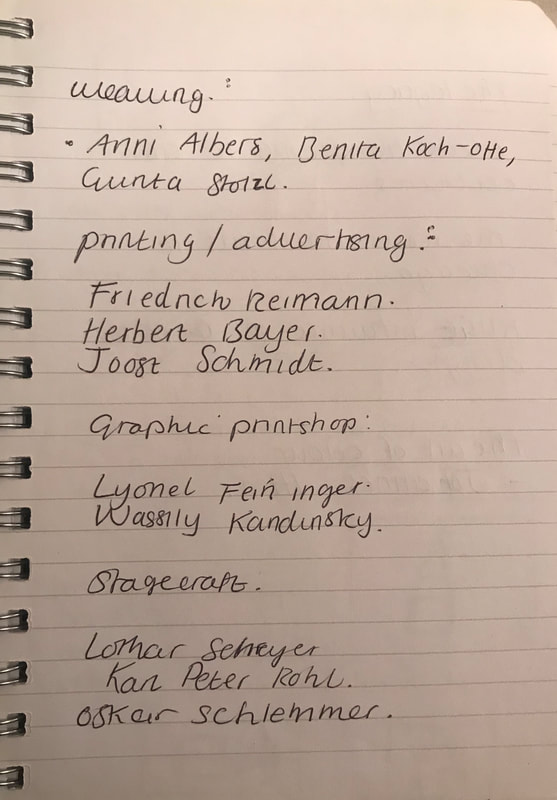 weaving.:
• Anni Albers, Benita Koch-otte,
Gunta Stolzl.
printing / advertising.:
Friedrich Reimann.
Herbert Bayer.
Joost Schmidt.
Graphic printshop:
Lyonel Feininger.
Wassily Kandinsky.
Stagecraft.
Lothar Schreyer
Karl Peter Rohl.
OSKar Schlemmer.